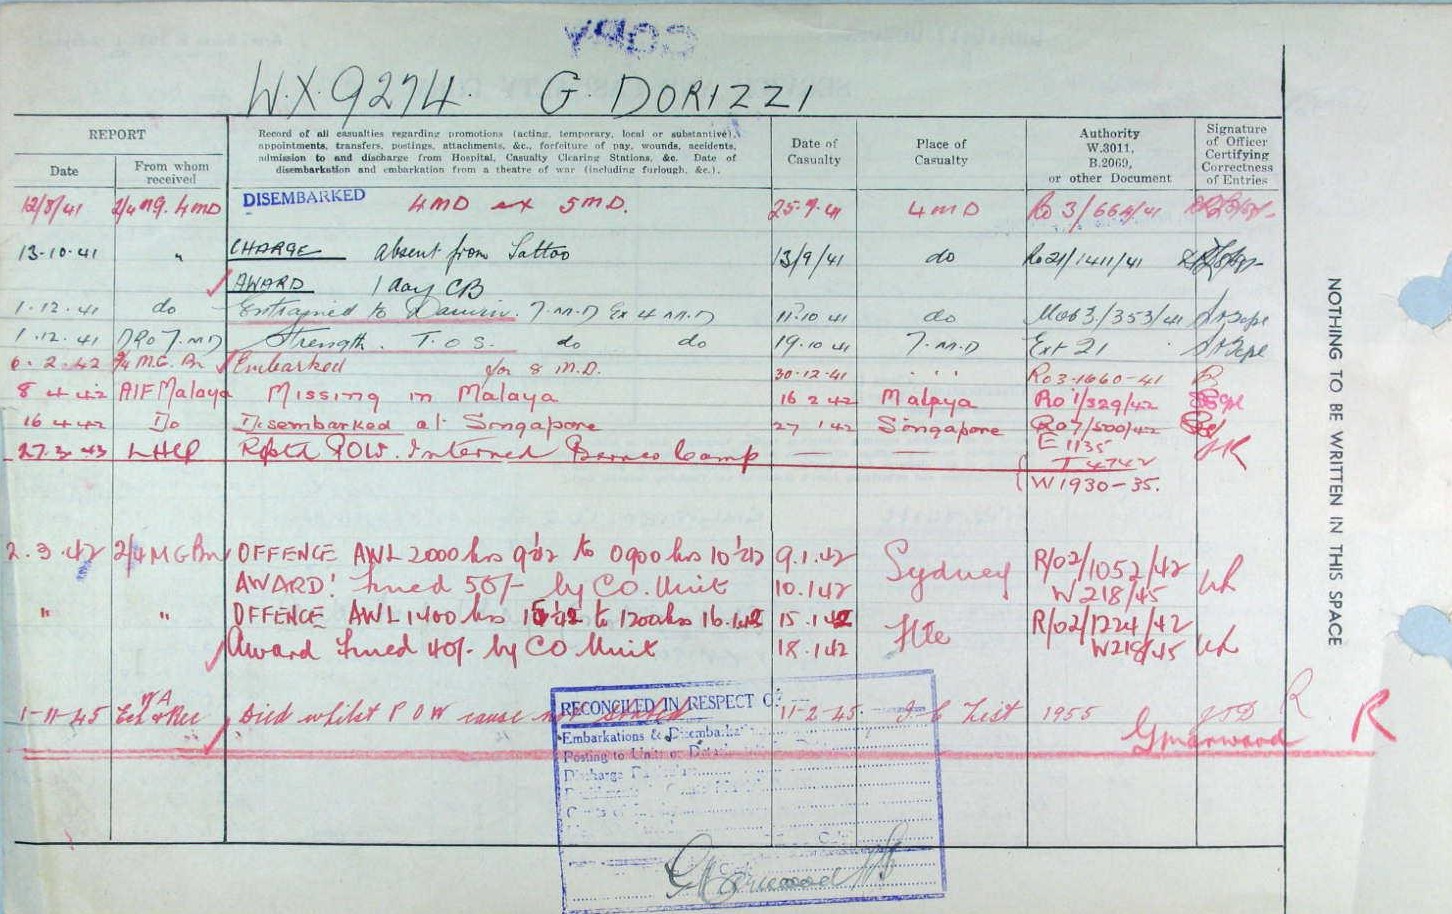 COPY
W.X.9274. G. DORIZZI
REPORT
Date
From whom received
Record of all casualties regarding promotions (acting, temporary, local or substantive),
appointments, transfers, postings, attachments, &c., forfeiture of pay, wounds, accidents,
admission to and discharge from Hospital, Casualty Clearing Stations, &c. Date of
disembarkation and embarkation from a theatre of war (including furlough, &c.).
Date of Casualty
Place of Casualty
Authority W.3011, B.2069, or other Document
Signature of Officer Certifying Correctness of Entries
12/8/41 2/4 MG. 4MD DISEMBARKED 4MD ex 5MD. 25-7-41 4MD Ro 3/664/41
13-10-41 " CHARGE absent from Tattoo 13/9/41 do Ro21/1411/41
AWARD 1 day CB
1-12-41 do Entrained to Darwin. 7.M.D Ex 4 M.D 11.10 41 do 3/353/41
1.12.41 DRO 7.MD Strength. T.O.S. do do 19.10 41 7.M.D Ext 21
6.2.42 2/4 M.G. Bn Embarked for 8 M.D. 30-12-41 " " " Ro3-1660-41
8 4 42 AIF Malaya Missing in Malaya 16 2 42 Malaya Ro 1/329/42
16 4 42 Do Disembarked at Singapore 27 1 42 Singapore Ro7/500/42
27.3.43 LHQ Rptd POW. Interned Borneo Camp — — E 1135
T 4742
W1930-35.
2.3.42 2/4 MG Bn OFFENCE AWL 2000 hrs 9/1/42 to 0900 hrs 10/1/42 9.1.42 Sydney R/02/1052/42
AWARD! Fined 50/- by CO. Unit 10.1.42 W218/45
" " OFFENCE AWL 1400 hrs 15/1/42 to 1200 hrs 16.1.42 15.1.42 Ftle R/02/1224/42
Award Fined 40/- by CO Unit 18.1.42 W218/45
1-11-45 WA Ech & Rec Died whilst POW cause not stated 11-2-45. J-C List 1955
GMarwood R R
RECONCILED IN RESPECT OF:—
Embarkations & Disembarka
Posting to Units or
Discharge
NOTHING TO BE WRITTEN IN THIS SPACE